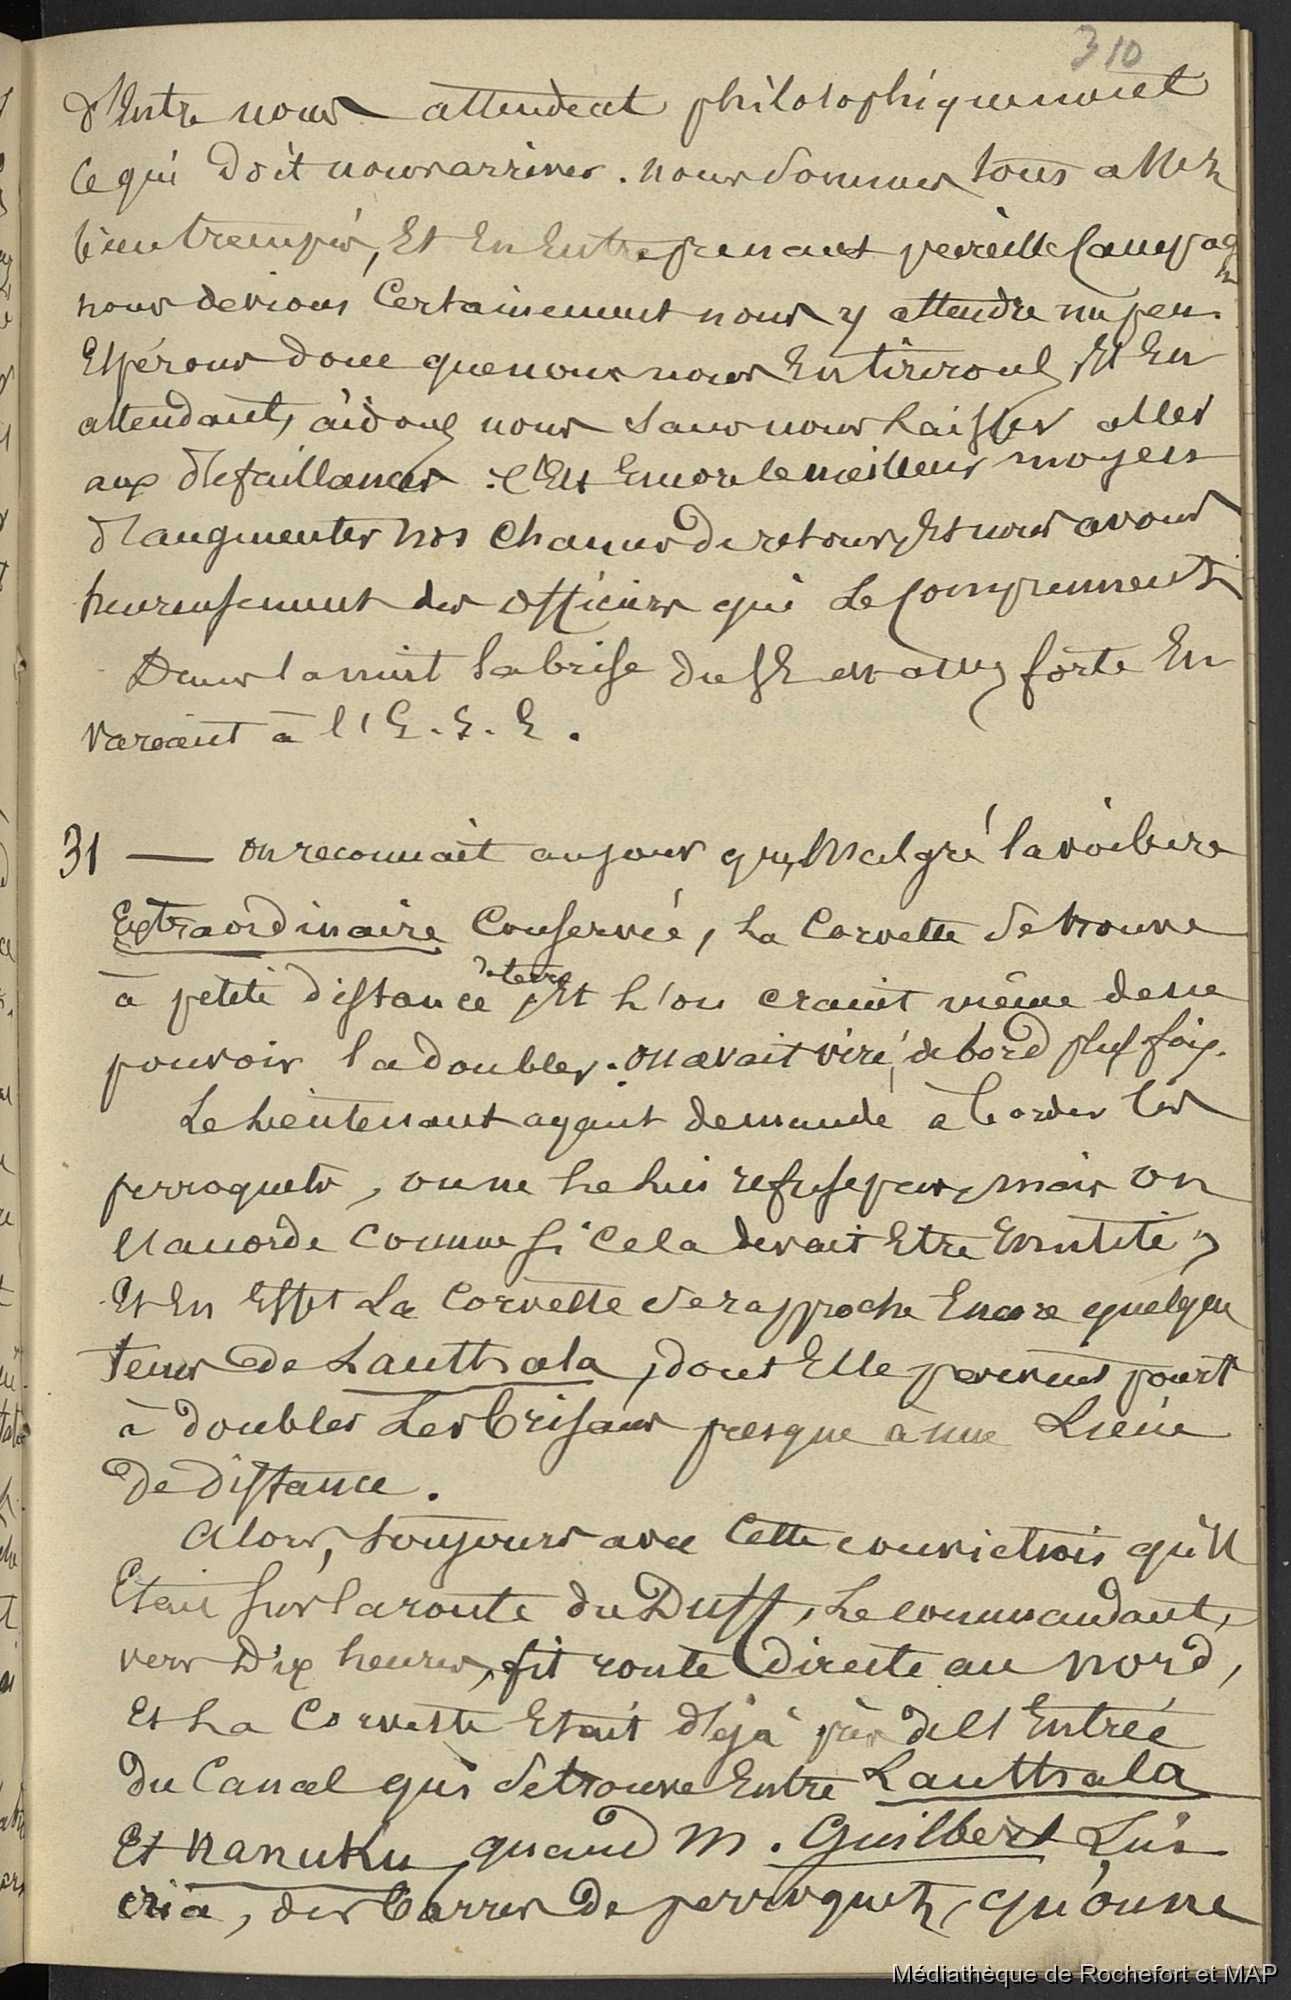 310
d'entre nous attendent philosophiquement
ce qui doit nous arriver. nous sommes tous assez
bien trempés, Et En Entreprenant pareille Campag
ne
nous devions Certainement nous y attendre un peu.
Espérons donc que nous nous En tirerons, Et En
attendant, aidons nous sans nous Laisser aller
aux défaillances. c'Est Encore le meilleur moyen
d'augmenter nos chances de retour, Et nous avons
heureusement des officiers qui Le Comprennent
Dans la nuit La brise du SE est assez forte En
variant à l'E.S.E.
31 — on reconnait au jour que, Malgré la voilure
Extraordinaire Conservée, La Corvette se trouve
de terre
à petite distance, Et L'on craint même de ne
pouvoir la doubler. on avait viré de bord plus. fois.
Le Lieutenant ayant demandé à border les
perroquets, on ne Le Lui refuse pas, mais on
l'accorde comme si cela devait Etre Inutile,
Et En Effet La Corvette se rapproche Encore quelque
tems de Lauthala, dont Elle parvient pourt
à doubler Les brisans presque à une Lieue
De Distance.
Alors, toujours avec cette conviction qu'il
Etait sur la route du Duff, Le commandant,
vers Dix heures, fit route directe au nord,
Et La Corvette Etait déjà près de l'Entrée
du Canal qui se trouve Entre Lauthala
Et Nanuku, quand M. Guilbert Lui
cria, des barres de perroquet, qu'on ne
Médiathèque de Rochefort et MAP